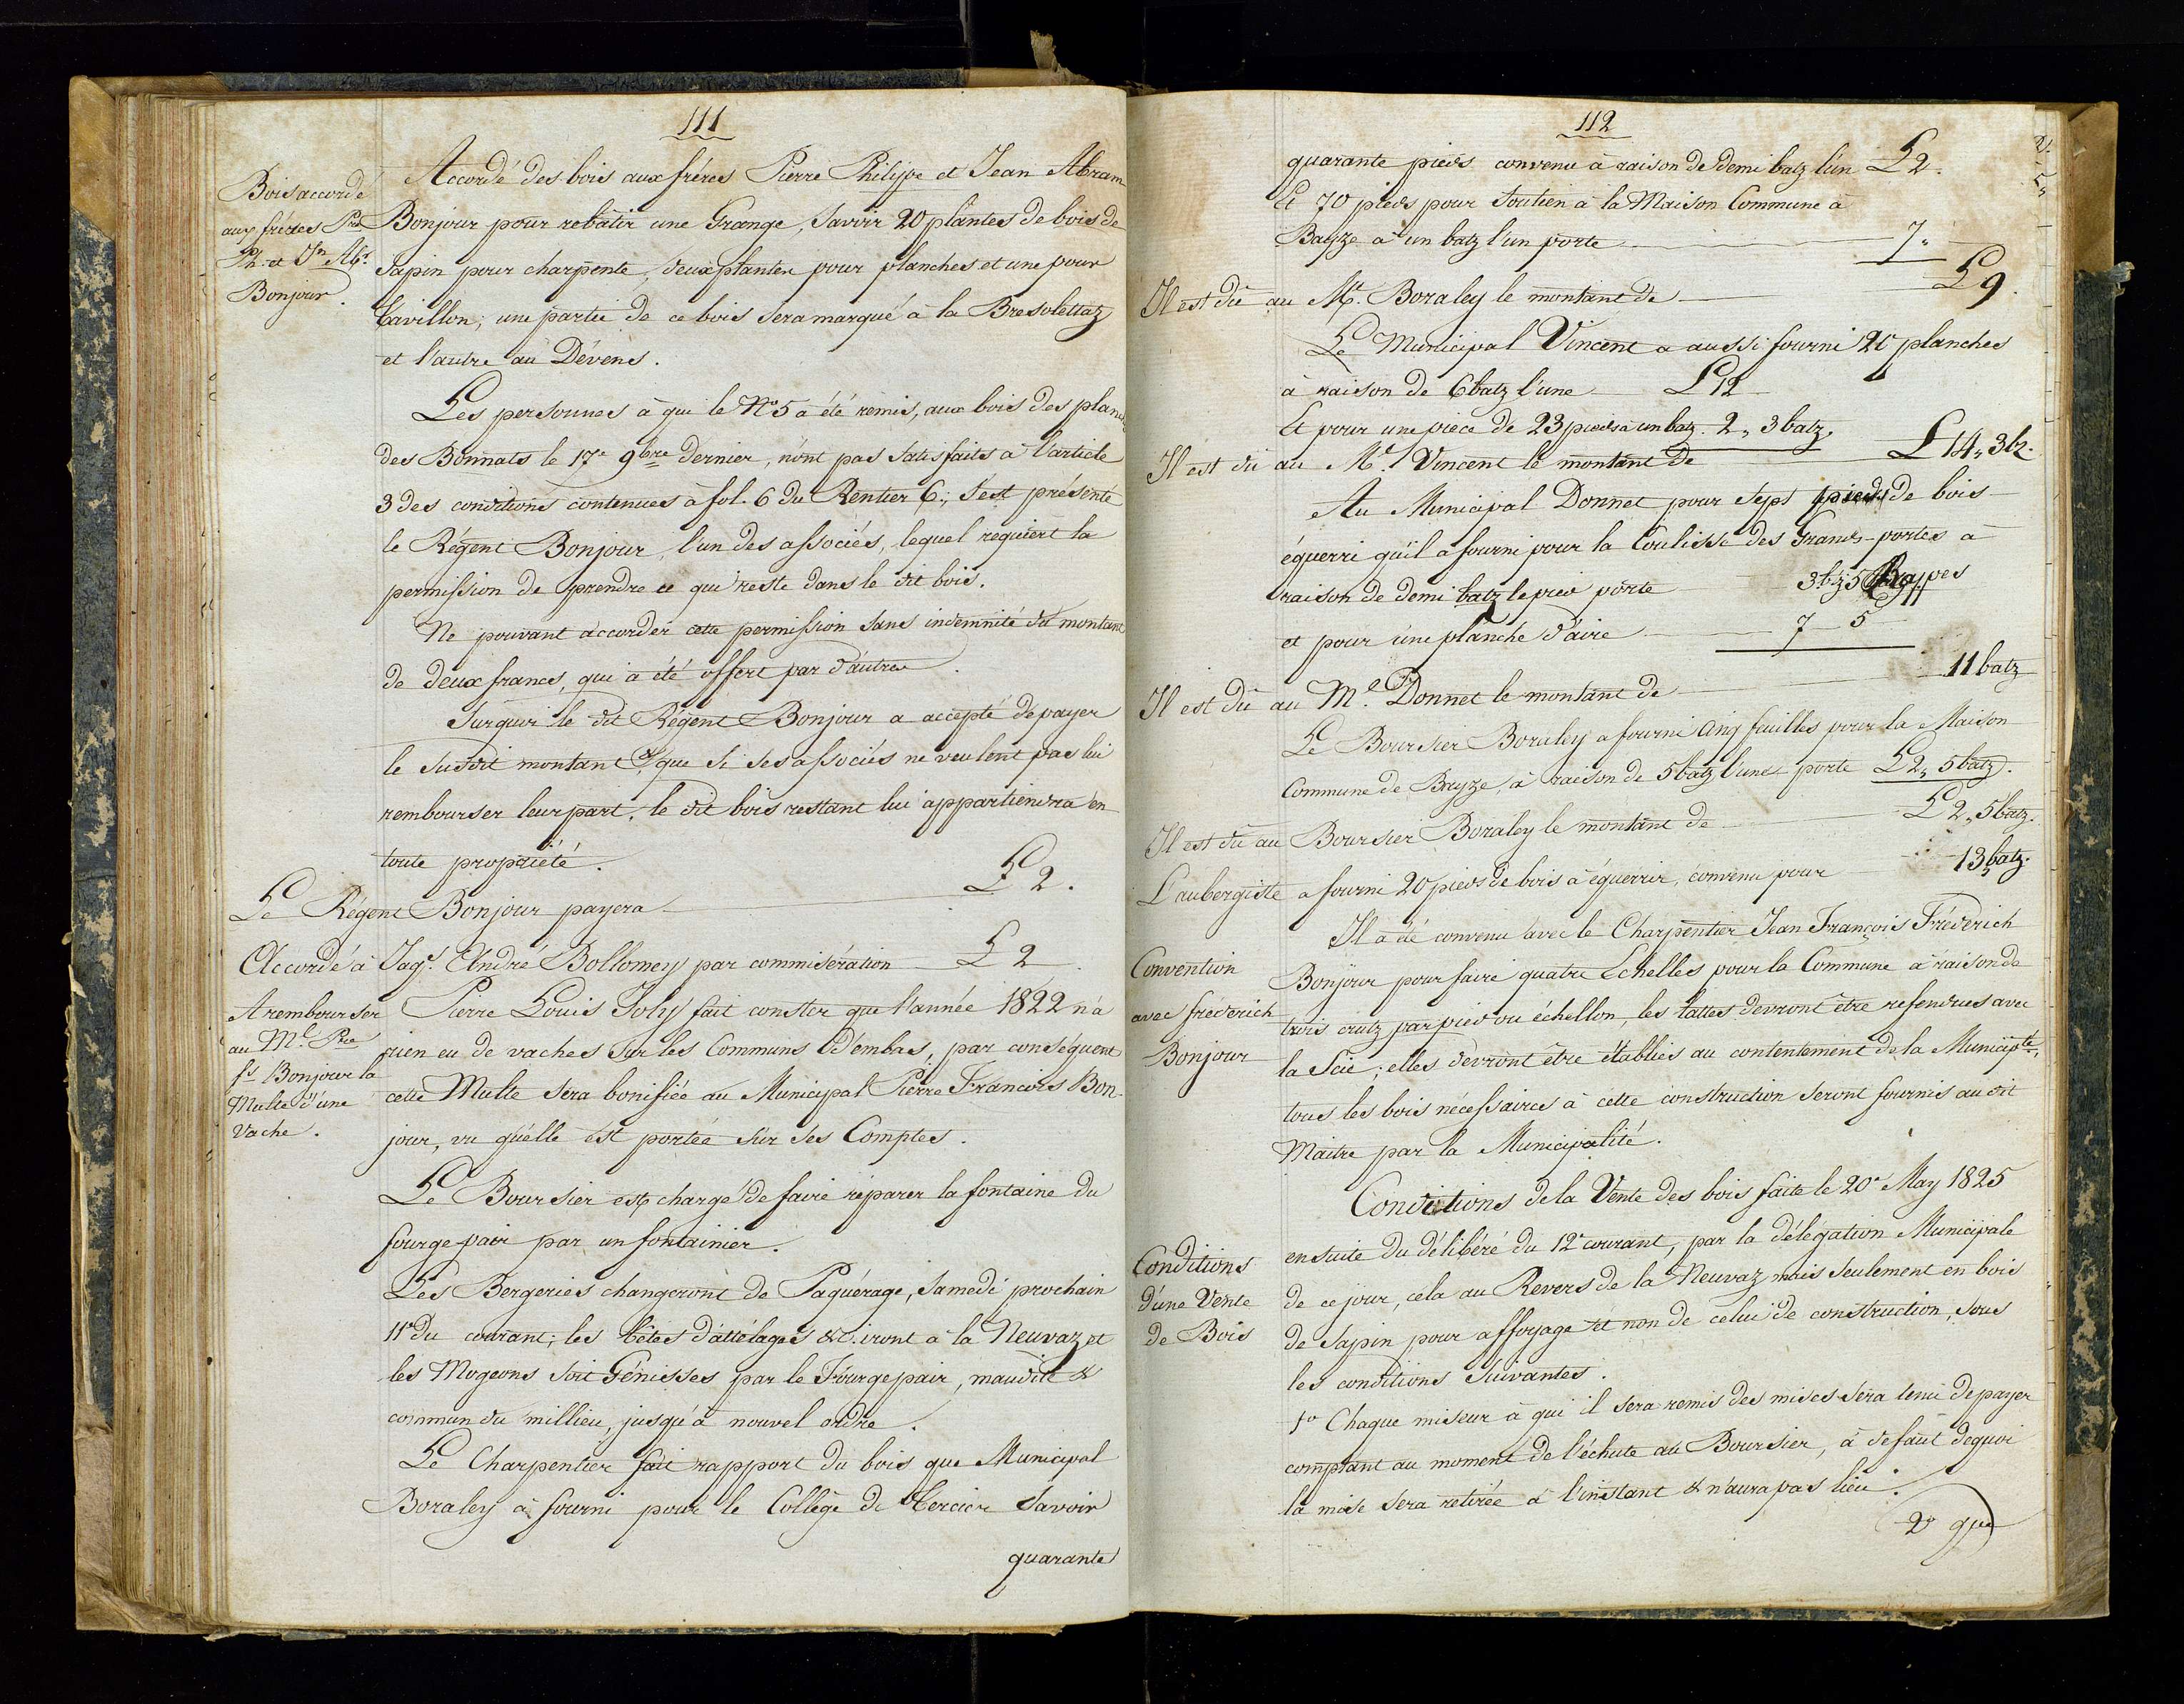 111
Bois accordé
aux fréres Pre
Ph. et Jn Abm.
Bonjour.
Accordé des bois aux fréres Pierre Philipe et Jean Abram
Bonjour pour rebâtir une Grange, Savoir 20 plantes de bois de
Sapin pour charpente, deux plantes pour planches et une pour
tavillon; une partie de ce bois sera marqué à la Bresolettaz
et l'autre au Dévens.
Les personnes à qui le No 5 a été remis, aux bois des planes
des Bonnats le 17e 9bre dernier, n'ont pas Satisfaits à l'article
3 des conditions contenues à fol. 6 du Rentier C; s'est présenté
le Régent Bonjour, l'un des associés, lequel requiert la
permission de prendre ce qui reste dans le dit bois.
Ne pouvant accorder cette permission sans indemnité du montant
de deux francs, qui a été offert par d'autres.
Surquoi le dit Régent Bonjour a accepté de payer
le susdit montant & que si ses associés ne veulent pas lui
rembourser leur part, le dit bois restant lui appartiendra en
toute propriété.
Le Régent Bonjour payera L 2.
Accordé à Jaqs. André Bollomey par commisération L 2.
A rembourser
au Ml. Pre
fs Bonjour la
Multe d'une
Vache.
Pierre Louis Joly fait conster que l'année 1822 n'a
rien eu de vaches sur les Communs d'embas, par conséquent
cette Multe sera bonifiée au Municipal Pierre Francois Bon-
jour, vu qu'elle est portée sur ses Comptes.
Le Boursier est chargé de faire réparer la fontaine du
fourgepair par un fontainier.
Les Bergeries changeront de Paquérage, Samedi prochain
11e du courant; les bêtes d'attelages &c. iront à la Neuvaz et
les Mogeons soit Génisses par le Fourgepair, maudite &
commun du millieu, jusqu'à nouvel ordre.
Le Charpentier fait rapport du bois que Municipal
Boraley a fourni pour le Collége de Cercier Savoir
quarante
112
quarante pieds convenu à raison de demi batz l'un L 2.
Et 70 pieds pour Soutien à la Maison Commune à
Bayze à un batz l'un porte 7 "
Il est dû au Ml. Boraley le montant de L 9.
Le Municipal Vincent a aussi fourni 20 planches
à raison de 6 batz l'une L 12
Et pour une piéce de 23 pieds à un batz. 2 " 3 batz.
Il est dû au Ml. Vincent le montant de L 14 " 3 bz.
Au Municipal Donnet pour sept pieds de bois
équerri qu'il a fourni pour la Coulisse des Grands-portes à
raison de demi batz le pied porte 3 bz 5 Rappes
et pour une planche d'aire 7 5
Il est dû au Ml. Donnet le montant de 11 batz
Le Boursier Boraley a fourni cinq feuilles pour la Maison
Commune de Bayze, à raison de 5 batz l'une porte L 2 " 5 batz.
Il est dû au Boursier Boraley le montant de L 2 " 5 batz.
L'aubergiste a fourni 20 pieds de bois à équerrir, convenu pour 13 batz.
Convention
avec fréderich
Bonjour
Il a été convenu avec le Charpentier Jean François Fréderich
Bonjour pour faire quatre Echelles pour la Commune à raison de
trois crutz par pied ou échellon, les lattes devront être refendues avec
la Scie; elles devront être établies au contentement de la Municipté,
tous les bois nécessaires à cette construction seront fournis au dit
Maitre par la Municipalité.
Conditions
d'une Vente
de Bois
Conditions de la Vente des bois faite le 20e May 1825
ensuite du délibéré du 12e courant, par la délégation Municipale
de ce jour, cela au Revers de la Neuvaz mais seulement en bois
de Sapin pour affoyage et non de celui de construction, sous
les conditions suivantes.
1o Chaque miseur à qui il sera remis des mises sera tenu de payer
comptant au moment de l'échute au Boursier, à defaut dequoi
la mise sera retirée à l'instant & n'aura pas lieu.
2o